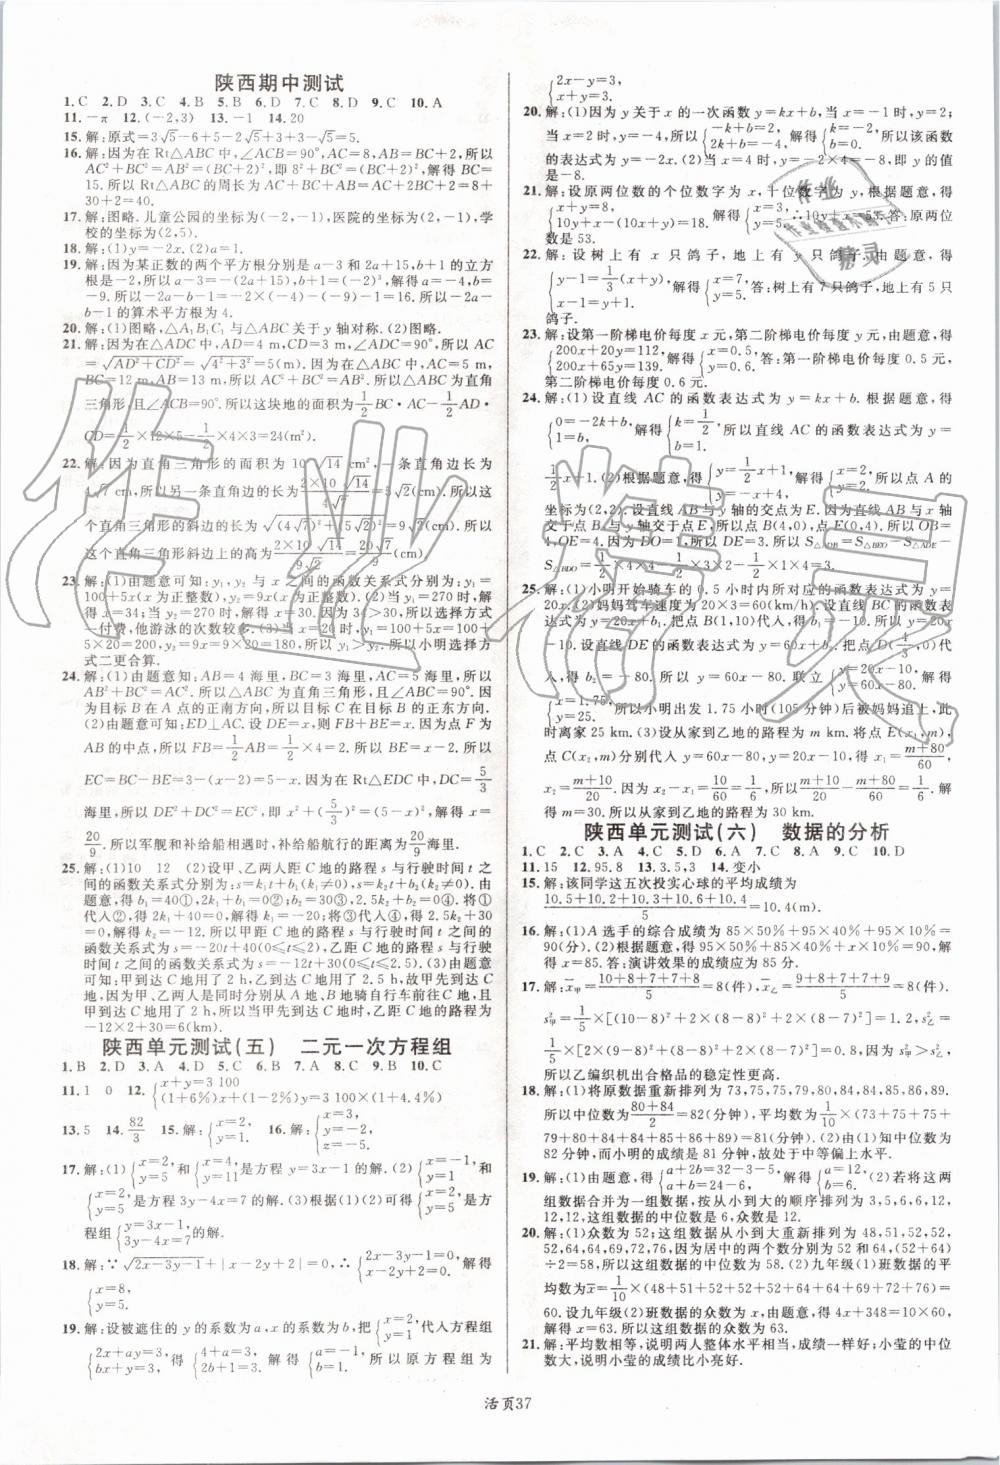 陕西期中测试
1.C 2.D 3.C 4.B 5.B 6.D 7.C 8.D 9.C 10.A
11.-π 12.(-2,3) 13.-1 14.20
15.解:原式=3√5-6+5-2√5+3+3-√5=5.
16.解:因为在Rt△ABC中,∠C=90°,AC=8,AB=BC+2,所以
AC²+BC²=AB²=(BC+2)²,即8²+BC²=(BC+2)²,解得BC=
15.所以Rt△ABC的周长为AC+BC+AB=AC+2BC+2=8+
30+2=40.
17.解:图略.儿童公园的坐标为(-2,-1),医院的坐标为(2,-1),学
校的坐标为(2,5).
18.解:(1)y=-2x.(2)a=1.
19.解:因为某正数的两个平方根分别是a-3和2a+15,b+1的立方
根是-2,所以a-3=-(2a+15),b+1=(-2)³,解得a=-4,b=
-9.所以-2a-b-1=-2×(-4)-(-9)-1=16.所以-2a-
b-1的算术平方根为4.
20.解:(1)图略,△A₁B₁C₁与△ABC关于y轴对称.(2)图略.
21.解:连接AC.因为AD=4 m,CD=3 m,∠ADC=90°,所以AC
=√(AD²+CD²)=√(4²+3²)=5(m).因为在△ABC中,AC=5 m,
BC=12 m,AB=13 m,所以AC²+BC²=AB².所以△ABC为直角
三角形,且∠ACB=90°.所以这块地的面积为1/2BC·AC-1/2AD·
CD=1/2×12×5-1/2×4×3=24(m²).
22.解:因为直角三角形的面积为10√14 cm²,一条直角边长为
4√7 cm,所以另一条直角边的长为(2×10√14)/(4√7)=5√2(cm).所以这
个直角三角形的斜边的长为√((4√7)²+(5√2)²)=9√2(cm).所以
这个直角三角形斜边上的高为(2×10√14)/(9√2)=20√7/9(cm).
23.解:(1)由题意可知:y₁,y₂与x之间的函数关系式分别为:y₁=
100+5x(x为正整数),y₂=9x(x为正整数).(2)当y₁=270时,解
得x=34;当y₂=270时,解得x=30.因为34>30,所以选择方式
一付费,他游泳的次数较多.(3)当x=20时,y₁=100+5x=100+
5×20=200,y₂=9x=9×20=180.所以y₁>y₂.所以小明选择方
式二更合算.
24.解:(1)由题意知:AB=4海里,BC=3海里,AC=5海里,所以
AB²+BC²=AC².所以△ABC是直角三角形,且∠ABC=90°.因
为目标B在A点的正南方向,所以目标C在目标B的正东方向.
(2)由题意可知:ED⊥AC.设DE=x,则BE=DE=x.因为点F为
AB的中点,所以FB=1/2AB=1/2×4=2.所以BE=x-2.所以
EC=BC-BE=3-(x-2)=5-x.因为在Rt△EDC中,DC=5/3
海里,所以DE²+DC²=EC²,即x²+(5/3)²=(5-x)²,解得x=
20/9.所以军舰和补给船相遇时,补给船航行的距离为20/9海里.
25.解:(1)10 12 (2)设甲、乙两人距C地的路程s与行驶时间t之
间的函数关系式分别为:s=k₁t+b₁(k₁≠0),s=k₂t+b₂(k₂≠0).由
题意,得b₁=40①,2k₁+b₁=0②,b₂=30③,2.5k₂+b₂=0④.将①
代入②,得2k₁+40=0,解得k₁=-20;将③代入④,得2.5k₂+30
=0,解得k₂=-12.所以甲距C地的路程s与行驶时间t之间的
函数关系式为s=-20t+40(0≤t≤2),乙距C地的路程s与行驶
时间t之间的函数关系式为s=-12t+30(0≤t≤2.5).(3)由题意
可知:甲到达C地用了2 h,乙到达C地用了2.5 h,故甲先到达C
地.因为甲、乙两人是同时分别从A、B地骑自行车前往C地,且甲
到达C地用了2 h,所以当甲先到达C地时,乙距C地的路程为
-12×2+30=6(km).
陕西单元测试(五) 二元一次方程组
1.B 2.D 3.A 4.D 5.C 6.B 7.A 8.C 9.B 10.C
11.1 0 12.{x+y=3 100 (1+6%)x+(1-20%)y=3 100×(1+4.4%)
13.5 14.82/3 15.解:{x=2,y=1. 16.解:{x=3,y=-2,z=-5.
17.解:(1){x=2,y=5和{x=4,y=11是方程y=3x-1的解.(2){x=-1,y=1和
{x=2,y=5是方程3y-4x=7的解.(3)根据(1)(2)可得{x=2,y=5是方
程组{y=3x-1,3y-4x=7的解.
18.解:∵√(2x-3y-1)+|x-2y+2|=0,∴{2x-3y-1=0,x-2y+2=0.解得
{x=8,y=5.
19.解:设被遮住的y的系数为a,x的系数为b,把{x=2,y=1代入方程组
{2x+ay=3,bx+y=3,得{4+a=3,2b+1=3.解得{a=-1,b=1.所以原方程组为
{2x-y=3,x+y=3.
20.解:(1)因为y关于x的一次函数y=kx+b,当x=-1时,y=2;
当x=2时,y=-4,所以{-k+b=2,2k+b=-4.解得{k=-2,b=0.所以该函数
的表达式为y=-2x.(2)当x=4时,y=-2×4=-8,即y的值
是-8.
21.解:设原两位数的个位数字为x,十位数字为y,根据题意,得
{x+y=8,10y+x-(10x+y)=18.解得{x=3,y=5.∴10y+x=53.答:原两位
数是53.
22.解:设树上有x只鸽子,地上有y只鸽子.由题意,得
{y-1=1/3(x+y),x-1=y+1.解得{x=7,y=5.答:树上有7只鸽子,地上有5只
鸽子.
23.解:设第一阶梯电价每度x元,第二阶梯电价每度y元,由题意,得
{200x+20y=112,200x+65y=139.解得{x=0.5,y=0.6.答:第一阶梯电价每度0.5元,
第二阶梯电价每度0.6元.
24.解:(1)设直线AC的函数表达式为y=kx+b.根据题意,得
{0=-2k+b,1=b.解得{k=1/2,b=1.所以直线AC的函数表达式为y=
1/2x+1.(2)根据题意,得{y=1/2x+1,y=-x+4.解得{x=2,y=2.所以点A的
坐标为(2,2).设直线AB与y轴的交点为E.因为直线y=-x+4
交x轴于点B,与y轴交于点E,所以B(4,0),点E(0,4).所以OB=
4,OE=4.因为DO=1,所以DE=3.所以S△ADB=S△BEO-S△ADE-
S△BDO=1/2×4×4-1/2×3×2-1/2×4×1=3.
25.解:(1)小明开始骑车的0.5小时内所对应的函数表达式为y=
20x.(2)妈妈驾车速度为20×3=60(km/h).设直线BC的函数表
达式为y=20x+b₁.把点B(1,10)代入,得b₁=-10.所以y=20x
-10.设直线DE的函数表达式为y=60x+b₂.把点D(4/3,0)代
入,得b₂=-80.所以y=60x-80.因为{y=20x-10,y=60x-80.解得
{x=1.75,y=25.所以小明出发1.75小时(105分钟)后被妈妈追上,此
时离家25 km.(3)设从家到乙地的路程为m km.将点E(x₁,m),
点C(x₂,m)分别代入y=60x-80,y=20x-10,得x₁=(m+80)/60,
x₂=(m+10)/20.因为x₂-x₁=10/60=1/6,所以(m+10)/20-(m+80)/60=1/6.解
得m=30.所以从家到乙地的路程为30 km.
陕西单元测试(六) 数据的分析
1.C 2.C 3.A 4.C 5.D 6.A 7.C 8.A 9.C 10.D
11.15 12.95.8 13.3.5,3 14.变小
15.解:该同学这五次投实心球的平均成绩为
(10.5+10.2+10.3+10.6+10.4)/5=10.4(m).
16.解:(1)A选手的综合成绩为85×50%+95×40%+95×10%=
90(分).(2)根据题意,得95×50%+85×40%+95×10%=
解得x=85.答:演讲效果的成绩应为85分.
17.解:x̄甲=(10+8+7+7+8)/5=8(件),x̄乙=(9+8+7+7+9)/5=8(件),s²甲=
1/5×[(10-8)²+2×(8-8)²+2×(7-8)²]=1.2,s²乙=
1/5×[2×(9-8)²+(8-8)²+2×(7-8)²]=0.8.因为s²甲>s²乙,
所以乙编织机出合格品的稳定性更高.
18.解:(1)将原数据重新排列为73,75,75,79,80,84,84,85,86,89.
所以中位数为(80+84)/2=82(分钟),平均数为1/10×(73+75+75+
79+80+84+84+85+86+89)=81(分钟).(2)由(1)知中位数为
82分钟,而小明的成绩为83分钟,故处于中等偏上水平.
19.解:(1)由题意,得{a+2b=32-3-5,a+b=24-6.解得{a=12,b=6.(2)若将这两
组数据合并为一组数据,按从小到大的顺序排列为3,5,6,6,12,
12,12,这组数据的中位数是6,众数是12.
20.解:(1)众数为52;这一组数据从小到大重新排列为48,51,52,52,
52,64,64,69,72,76,因为居中的两个数为52和64,所以(52+64)
÷2=58,所以这组数据的中位数为58.(2)九年级(1)班数据的平
均数为x̄=1/10×(48+51+52+52+52+64+64+69+72+76)=
60.设九年级(2)班数据的众数为x,由题意,得4x+348=10×60.
解得x=63.所以这组数据的众数为63.
21.解:平均数相等,说明两人整体水平相当,成绩一样好;小莹的中位
数大,说明小莹的成绩比小亮好.
活页37
作业精灵